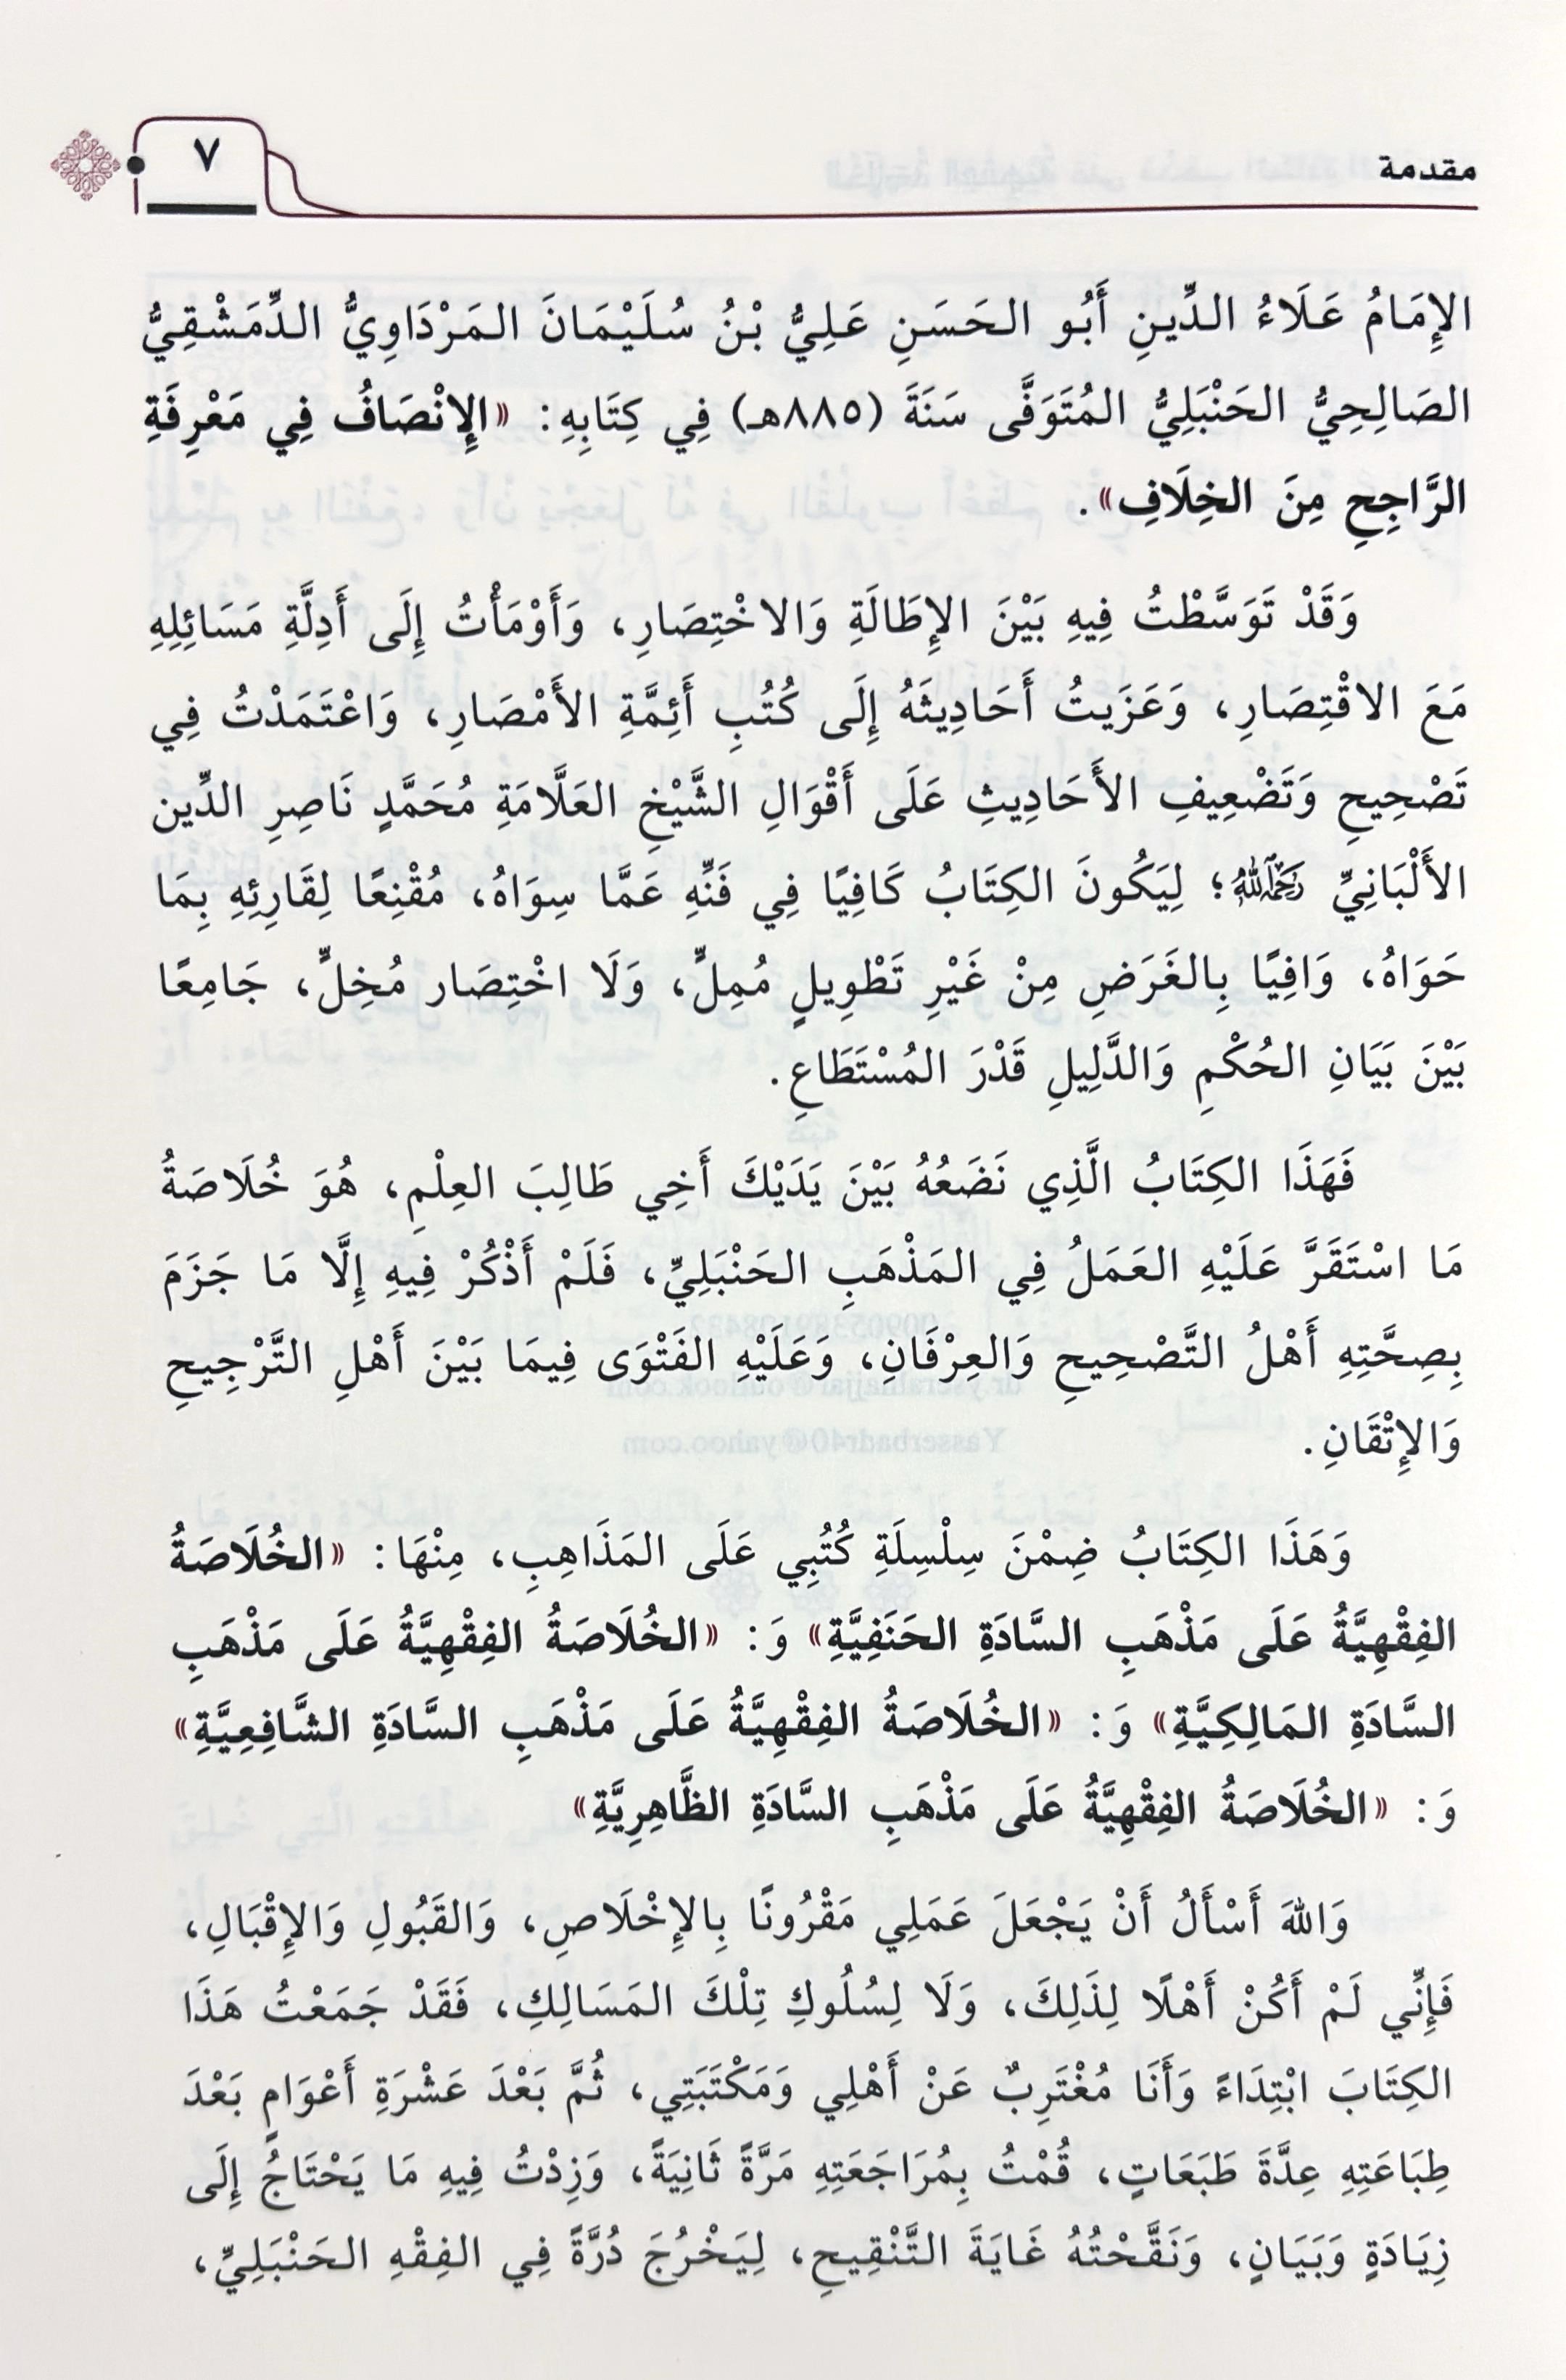 مقدمة
٧
الإِمَامُ عَلَاءُ الدِّينِ أَبُو الحَسَنِ عَلِيُّ بْنُ سُلَيْمَانَ المَرْدَاوِيُّ الدِّمَشْقِيُّ
الصَالِحِيُّ الحَنْبَلِيُّ المُتَوَفَّى سَنَةَ (٨٨٥هـ) فِي كِتَابِهِ: «الإِنْصَافُ فِي مَعْرِفَةِ
الرَّاجِحِ مِنَ الخِلَافِ».
وَقَدْ تَوَسَّطْتُ فِيهِ بَيْنَ الإِطَالَةِ وَالاخْتِصَارِ، وَأَوْمَأْتُ إِلَى أَدِلَّةِ مَسَائِلِهِ
مَعَ الاقْتِصَارِ، وَعَزَيتُ أَحَادِيثَهُ إِلَى كُتُبِ أَئِمَّةِ الأَمْصَارِ، وَاعْتَمَدْتُ فِي
تَصْحِيحِ وَتَضْعِيفِ الأَحَادِيثِ عَلَى أَقْوَالِ الشَّيْخِ العَلَّامَةِ مُحَمَّدٍ نَاصِرِ الدِّين
الأَلْبَانِيِّ رَحِمَهُ اللَّهُ؛ لِيَكُونَ الكِتَابُ كَافِيًا فِي فَنِّهِ عَمَّا سِوَاهُ، مُقْنِعًا لِقَارِئِهِ بِمَا
حَوَاهُ، وَافِيًا بِالغَرَضِ مِنْ غَيْرِ تَطْوِيلٍ مُمِلٍّ، وَلَا اخْتِصَار مُخِلٍّ، جَامِعًا
بَيْنَ بَيَانِ الحُكْمِ وَالدَّلِيلِ قَدْرَ المُسْتَطَاعِ.
فَهَذَا الكِتَابُ الَّذِي نَضَعُهُ بَيْنَ يَدَيْكَ أَخِي طَالِبَ العِلْمِ، هُوَ خُلَاصَةُ
مَا اسْتَقَرَّ عَلَيْهِ العَمَلُ فِي المَذْهَبِ الحَنْبَلِيِّ، فَلَمْ أَذْكُرْ فِيهِ إِلَّا مَا جَزَمَ
بِصِحَّتِهِ أَهْلُ التَّصْحِيحِ وَالعِرْفَانِ، وَعَلَيْهِ الفَتْوَى فِيمَا بَيْنَ أَهْلِ التَّرْجِيحِ
وَالإِتْقَانِ.
وَهَذَا الكِتَابُ ضِمْنَ سِلْسِلَةِ كُتُبِي عَلَى المَذَاهِبِ، مِنْهَا: «الخُلَاصَةُ
الفِقْهِيَّةُ عَلَى مَذْهَبِ السَّادَةِ الحَنَفِيَّةِ» وَ: «الخُلَاصَةُ الفِقْهِيَّةُ عَلَى مَذْهَبِ
السَّادَةِ المَالِكِيَّةِ» وَ: «الخُلَاصَةُ الفِقْهِيَّةُ عَلَى مَذْهَبِ السَّادَةِ الشَّافِعِيَّةِ»
وَ: «الخُلَاصَةُ الفِقْهِيَّةُ عَلَى مَذْهَبِ السَّادَةِ الظَّاهِرِيَّةِ»
وَاللهَ أَسْأَلُ أَنْ يَجْعَلَ عَمَلِي مَقْرُونًا بِالإِخْلَاصِ، وَالقَبُولِ وَالإِقْبَالِ،
فَإِنِّي لَمْ أَكُنْ أَهْلًا لِذَلِكَ، وَلَا لِسُلُوكِ تِلْكَ المَسَالِكِ، فَقَدْ جَمَعْتُ هَذَا
الكِتَابَ ابْتِدَاءً وَأَنَا مُغْتَرِبٌ عَنْ أَهْلِي وَمَكْتَبَتِي، ثُمَّ بَعْدَ عَشْرَةِ أَعْوَامٍ بَعْدَ
طِبَاعَتِهِ عِدَّةَ طَبَعَاتٍ، قُمْتُ بِمُرَاجَعَتِهِ مَرَّةً ثَانِيَةً، وَزِدْتُ فِيهِ مَا يَحْتَاجُ إِلَى
زِيَادَةٍ وَبَيَانٍ، وَنَقَّحْتُهُ غَايَةَ التَّنْقِيحِ، لِيَخْرُجَ دُرَّةً فِي الفِقْهِ الحَنْبَلِيِّ،